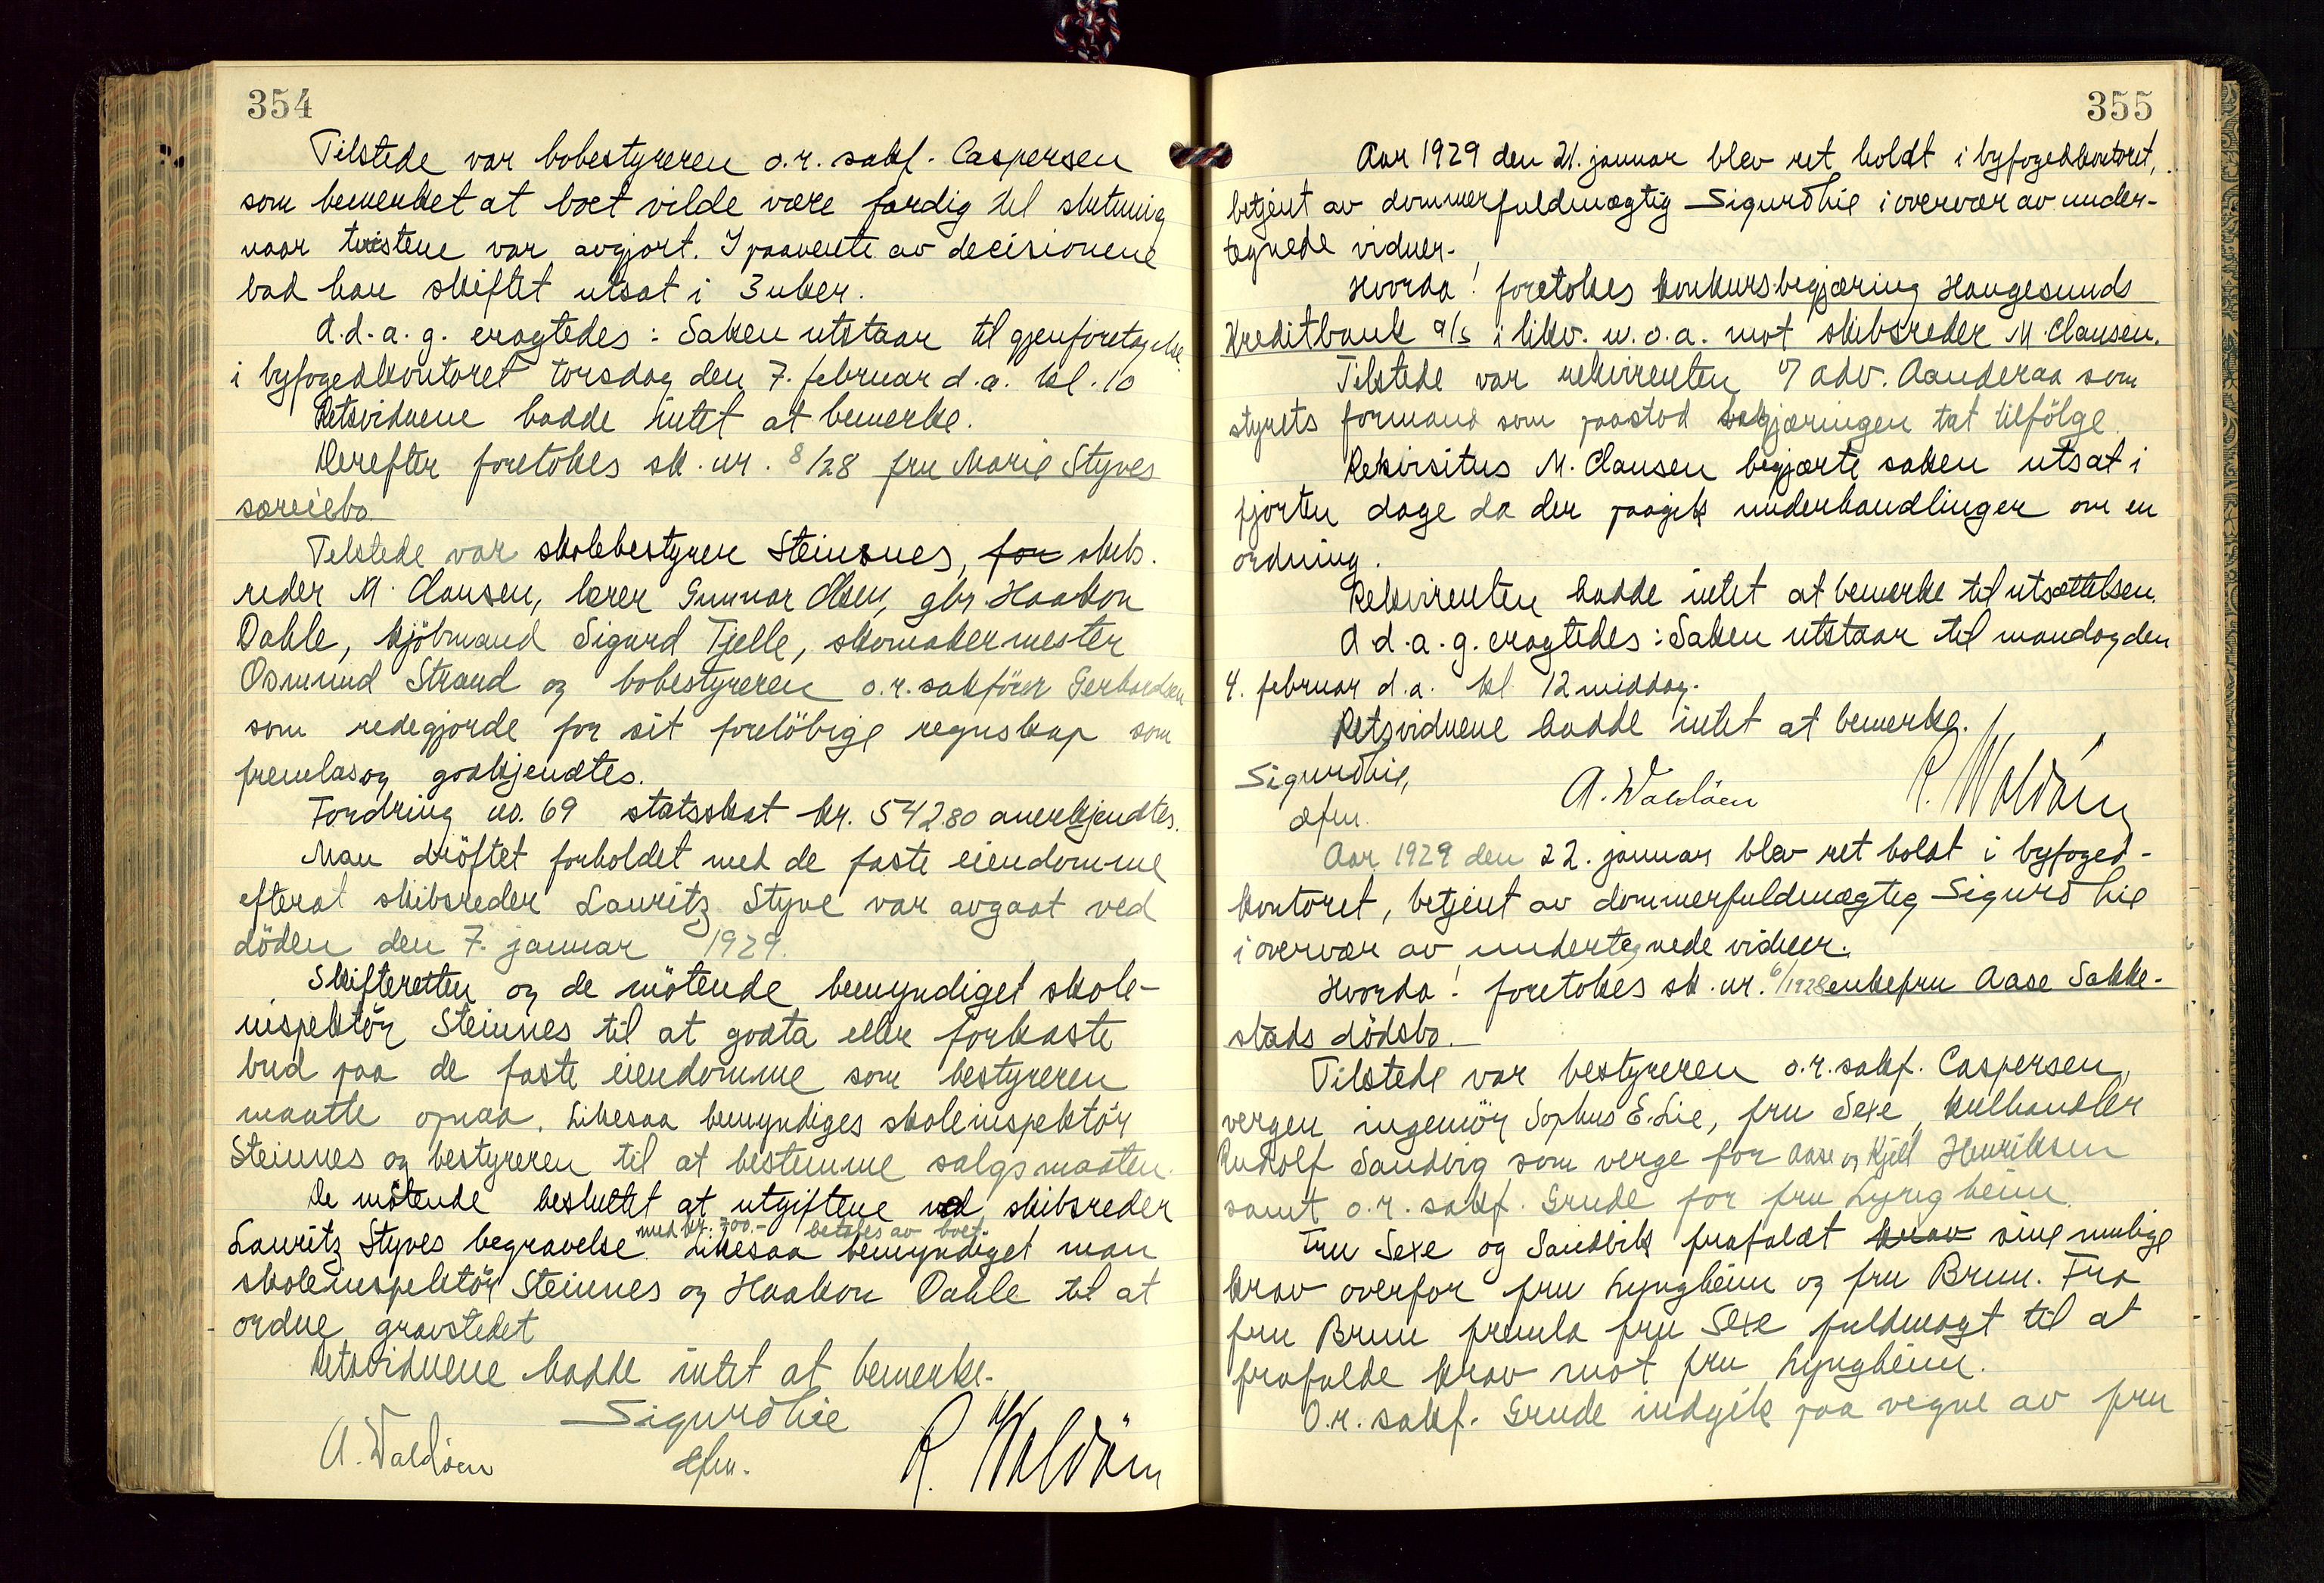 354
Tilstede var bobestyreren o.r. sakf. Caspersen
som bemerket at boet vilde være færdig til slutning
naar tvistene var avgjort. I paavente av decisionene
bad han skiftet utsat i 3 uker.
A.d.a.g. eragtedes: Saken utstaar til gjenforetagelse
i byfogedkontoret torsdag den 7. februar d.a. kl. 10
Retsvidnene hadde intet at bemerke.
Derefter foretokes sk. nr. 8/28 fru Marie Styves
særeiebo.
Tilstede var skolebestyrer Steinsnes, for skibs-
reder M. Clausen, lærer Gunnar Olsen, gbr Haakon
Dahle, kjöbmand Sigurd Tjelle, skomakermester
Osmund Strand og bobestyreren o.r. sakförer Gerhardsen
som redegjorde for sit forelöbige regnskap som
fremlas og godkjendtes.
Fordring no. 69 statsskat kr. 542.80 anerkjendtes.
Man dröftet forholdet med de faste eiendomme
efterat skibsreder Lauritz Styve var avgaat ved
döden den 7. januar 1929.
Skifteretten og de mötende bemyndiget skole-
inspektör Steinnes til at godta eller forkaste
bud paa de faste eiendomme som bestyreren
maatte opnaa. Likesaa bemyndiges skoleinspektör
Steinnes og bestyreren til at bestemme salgsmaaten.
De mötende besluttet at utgiftene ved skibsreder
med kr. 700.- betales av boet.
Lauritz Styves begravelse. Likesaa bemyndiget man
skoleinspektör Steinnes og Haakon Dahle til at
ordne gravstedet
Retsvidnene hadde intet at bemerke.
Sigurd Lie
A. Waldöen dfm. R. Waldöen
355
Aar 1929 den 21. januar blev ret holdt i byfogedkontoret,
betjent av dommerfuldmægtig Sigurd Lie i overvær av under-
tegnede vidner.
Hvorda! foretokes konkursbegjæring Haugesunds
Kreditbank a/s i likv. m.o.a. mot skibsreder M. Clausen.
Tilstede var rekvirenten v/ adv. Aanderaa som
styrets formand som paastod begjæringen tat tilfölge.
Rekvisitus M. Clausen begjærte saken utsat i
fjorten dage da der paagik underhandlinger om en
ordning.
Rekvirenten hadde intet at bemerke til utsættelsen.
A d.a.g. eragtedes: Saken utstaar til mandag den
4. februar d.a. kl 12 middag.
Retsvidnene hadde intet at bemerke.
Sigurd Lie,
dfm. A. Waldöen R. Waldöen
Aar 1929 den 22. januar blev ret holdt i byfoged-
kontoret, betjent av dommerfuldmægtig Sigurd Lie
i overvær av undertegnede vidner.
Hvorda! foretokes sk. nr. 6/1928 enkefru Aase Sakke-
stads dödsbo.
Tilstede var bestyreren o.r. sakf. Caspersen,
vergen ingeniör Sophus E. Lie, fru Sexe, kulhandler
Rudolf Sandvig som verge for Aase og Kjell Henriksen
samt o.r. sakf. Grude for fru Lyngheim.
Fru Sexe og Sandvik frafaldt krav sine mulige
krav overfor fru Lyngheim og fru Brun. Fra
fru Brun fremla fru Sexe fuldmagt til at
frafalde krav mot fru Lyngheim.
O.r. sakf. Grude indgik paa vegne av fru